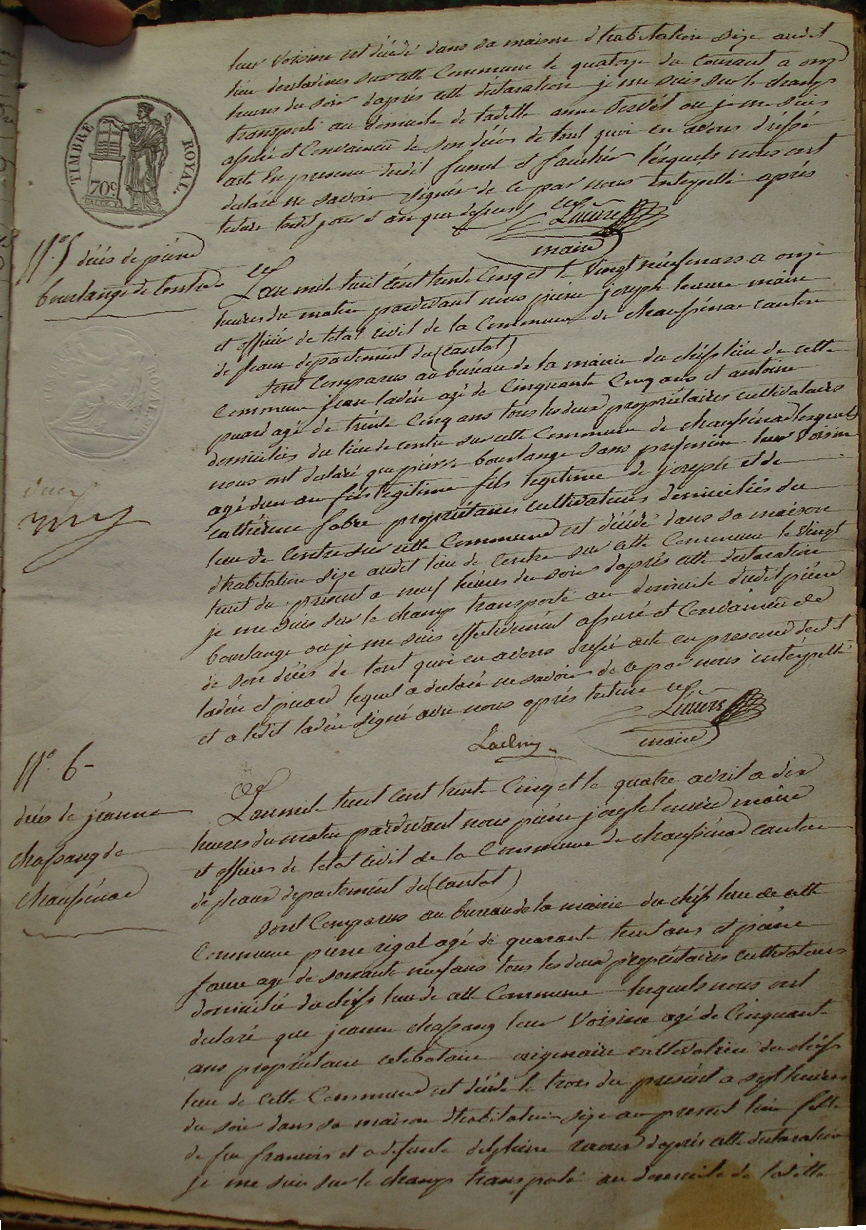 leur voisine est décédé dans sa maison d'habitation size audit
lieu sur cette Commune le quatorze du Courant a onze
heures du soir d'après cette déclaration je me suis sur le champ
transporté au domicile de ladite anne ou je me suis
assuré et Convaincu de son décès de tout quoi en avons dressé
acte En presence dudit et lesquels nous ont
déclaré ne savoir signer de ce par nous interpellé après
lecture
TIMBRE ROYAL.
70c
maire
N° 5 décès de pierre
bourlange de Contre
L'an mil huit cent trente Cinq et le vingt neuf mars a onze
heures du matin pardevant nous pierre joseph maire
et officier de l'etat civil de la Commune de chaussenac canton
de pleaux département du (Cantal)
sont Comparus au bureau de la mairie du chef lieu de cette
Commune jean ladén agé de Cinquante Cinq ans et antoine
agé de trente Cinq ans tous les deux propriétaires cultivateurs
domiciliés du lieu de Contre sur cette Commune de chaussenac lesquels
nous ont déclaré que pierre bourlange sans profession leur voisin
agé d'un an fils légitime fils legitime de joseph et de
Catherine fabre propriétaires cultivateurs domiciliés du
lieu de Contre sur cette Commune est décédé dans sa maison
d'habitation size audit lieu de Contre sur cette Commune le vingt
huit du présent a neuf heures du soir d'après cette declaration
je me suis sur le champ transporté au domicile dudit pierre
bourlange ou je me suis effectivement assuré et Convaincu de
de son décès de tout quoi en avons dressé acte en presence desdits
ladén et lequel a déclaré ne savoir de ce par nous interpellé
et a ledit ladén signé avec nous après lecture
maire
N° 6
décès de jeanne
chassang de
chaussenac
L'an mil huit cent trente Cinq et le quatre avril a dix
heures du matin pardevant nous pierre joseph maire
et officier de l'etat civil de la Commune de chaussenac canton
de pleaux département du (Cantal)
sont Comparus au bureau de la mairie du chef lieu de cette
Commune pierre rigal agé de quarante huit ans et pierre
faure agé de soixante neuf ans tous les deux propriétaires cultivateurs
domicilié du chef lieu de cette Commune lesquels nous ont
declaré que jeanne chassang leur voisine agé de Cinquante
ans propriétaire celibataire originaire cultivatrice du chef
lieu de cette Commune est décédé le trois du présent a sept heures
du soir dans sa maison d'habitation size au present lieu fille
de feu francois et a defunte delphine d'après cette declaration
je me suis sur le champ transporté au domicile de ladite